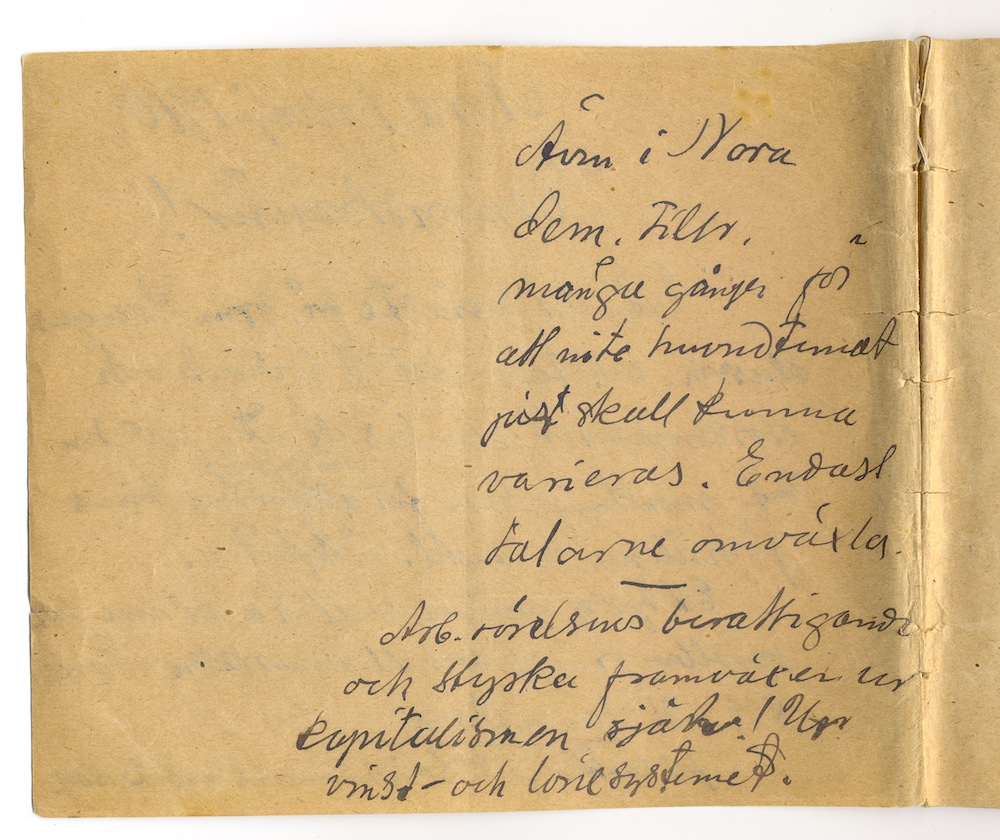 Även i Nora
dem. tillr.
många gånger för
att inte huvudtemat
just skall kunna
varieras. Endast
talarne omväxla.
Arb. rörelsens berättigande
och styrka framväxer ur
kapitalismen själv! Ur
vinst- och lönesystemet.